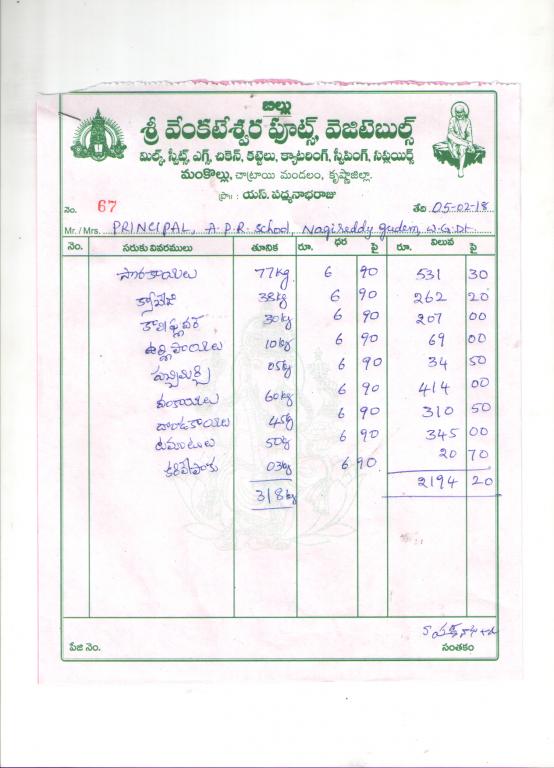 బిల్లు
శ్రీ వేంకటేశ్వర ఫ్రూట్స్, వెజిటెబుల్స్
మిల్క్, స్వీట్స్, ఎగ్స్, చికెన్, కట్టెలు, క్యాటరింగ్, స్వీపింగ్, సప్లయర్స్
మంకొల్లు, చాట్రాయి మండలం, కృష్ణాజిల్లా.
ప్రొ: యస్. పద్మనాభరాజు
నెం. 67 తేది 05-02-18
Mr. / Mrs. PRINCIPAL, A.P.R. School, Nagireddy gudem, W.G.Dt.
నెం. సరుకు వివరములు తూనిక రూ. ధర పై రూ. విలువ పై
సొరకాయలు 77kg 6 90 531 30
క్యాబేజి 38kg 6 90 262 20
కాలిఫ్లవర్ 30kg 6 90 207 00
ఉల్లిపాయలు 10kg 6 90 69 00
పచ్చిమిర్చి 05kg 6 90 34 50
వంకాయలు 60kg 6 90 414 00
దొండకాయలు 45kg 6 90 310 50
టమాటలు 50kg 6 90 345 00
కరివేపాకు 03kg 6 90 20 70
318kg 2194 20
పేజి నెం. సంతకం